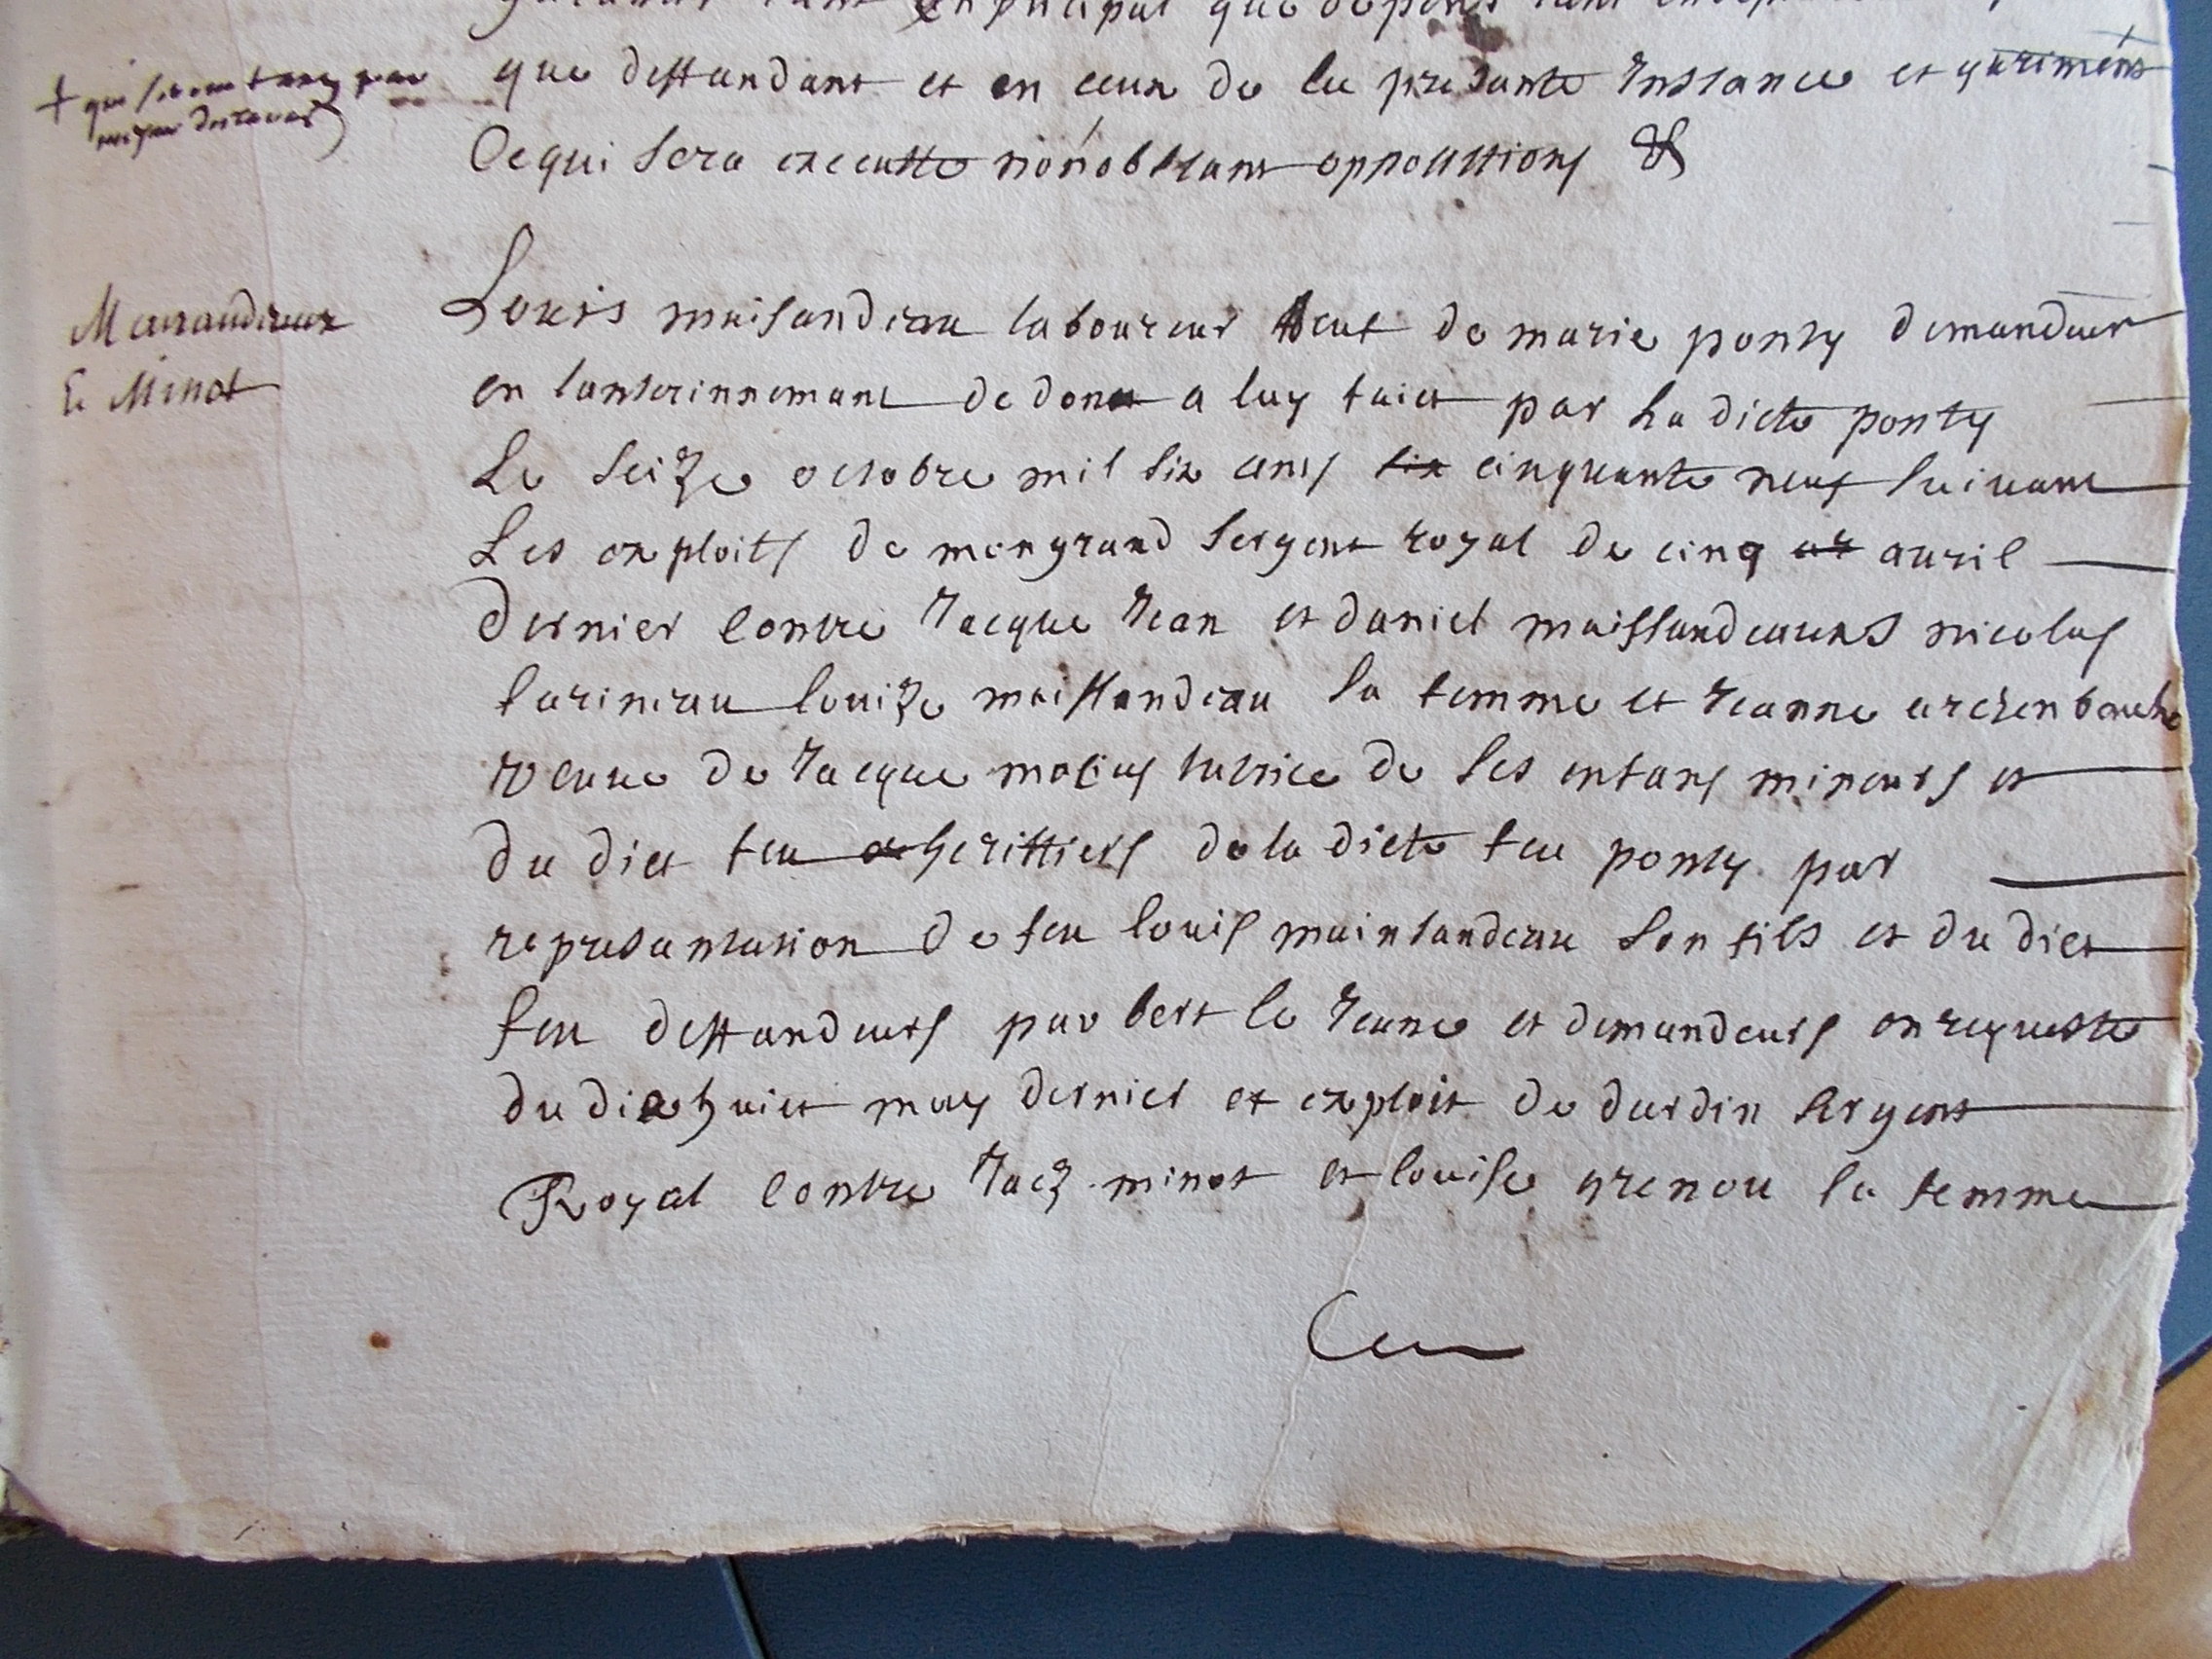 que deffandant et en ceux de la presante Instance et garimens
Ce qui sera executté nonobstant oppositions &
Maisandeaux
Et Minot
Louis maisandeau laboureur veuf de marie ponty demandeur
en lanterinnemant de don a luy faict par La dicte ponty
Le seize octobre mil six cens six cinquante neuf suivant
Les exploits de mongrand sergent royal de cinq avril
dernier contre Jacque Jean et daniel maissandeaux nicolas
farineau louize maissandeau sa femme et Jeanne archenbault
veuve de Jacque tutrice de ses enfans mineurs et
du dict feu herittiers de la dicte feu ponty par
represantation de feu louis maintandeau son fils et du dict
feu deffandeurs par bert le Jeune et demandeurs en requeste
du dix huict may dernier et exploit de durdin sergent
Royal contre Jacq minot et louise grenou sa femme